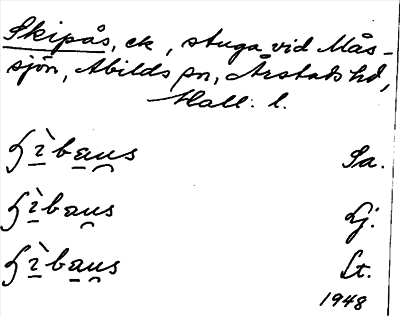 Skipås, ck, stuga vid Mås-
sjön, Abilds sn, Årstads hd,
Hall. l.
ɧìbaus Sa.
ɧìbaus Lj.
ɧìbaus Lt.
1948